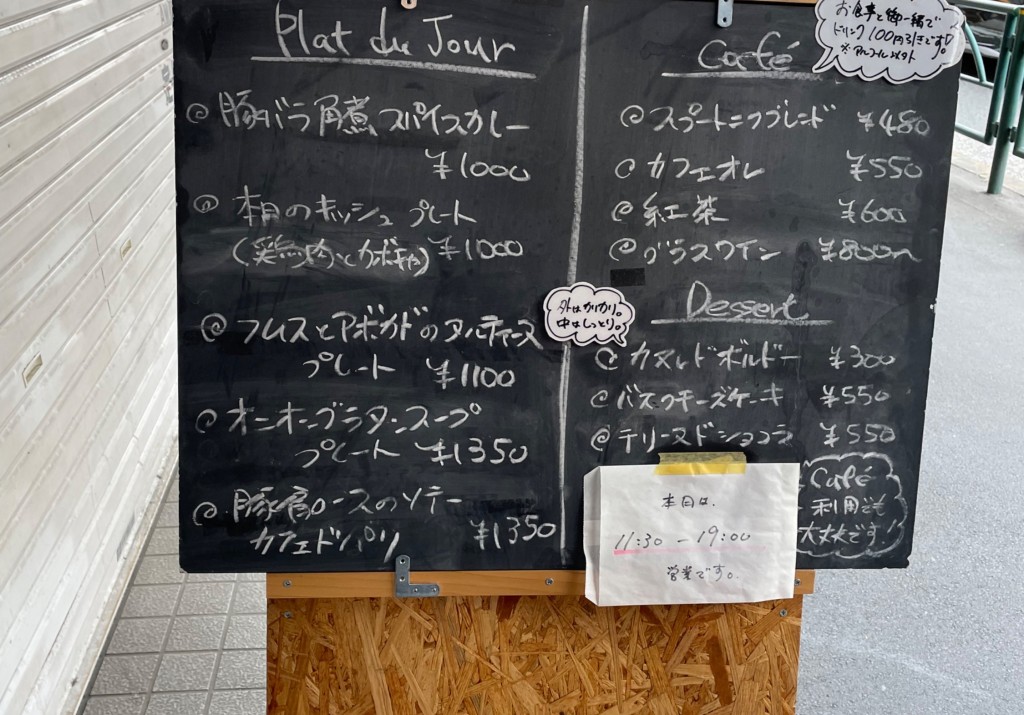 Plat du Jour
@ 豚バラ角煮スパイスカレー
¥1000
@ 本日のキッシュプレート
(鶏肉とカボチャ) ¥1000
@ フムスとアボカドのタルティーヌ
プレート ¥1100
@ オニオングラタンスープ
プレート ¥1350
@ 豚肩ロースのソテー
カフェドパリ ¥1350
お食事と御一緒で
ドリンク100円引きです!
※アルコール以外
Café
@ スプートニクブレンド ¥480
@ カフェオレ ¥550
@ 紅茶 ¥600
@ グラスワイン ¥800〜
Dessert
外はカリカリ。
中はしっとり。
@ カヌレドボルドー ¥300
@ バスクチーズケーキ ¥550
@ テリーヌドショコラ ¥550
Café
利用でも
大丈夫です!
本日は、
11:30 - 19:00
営業です。